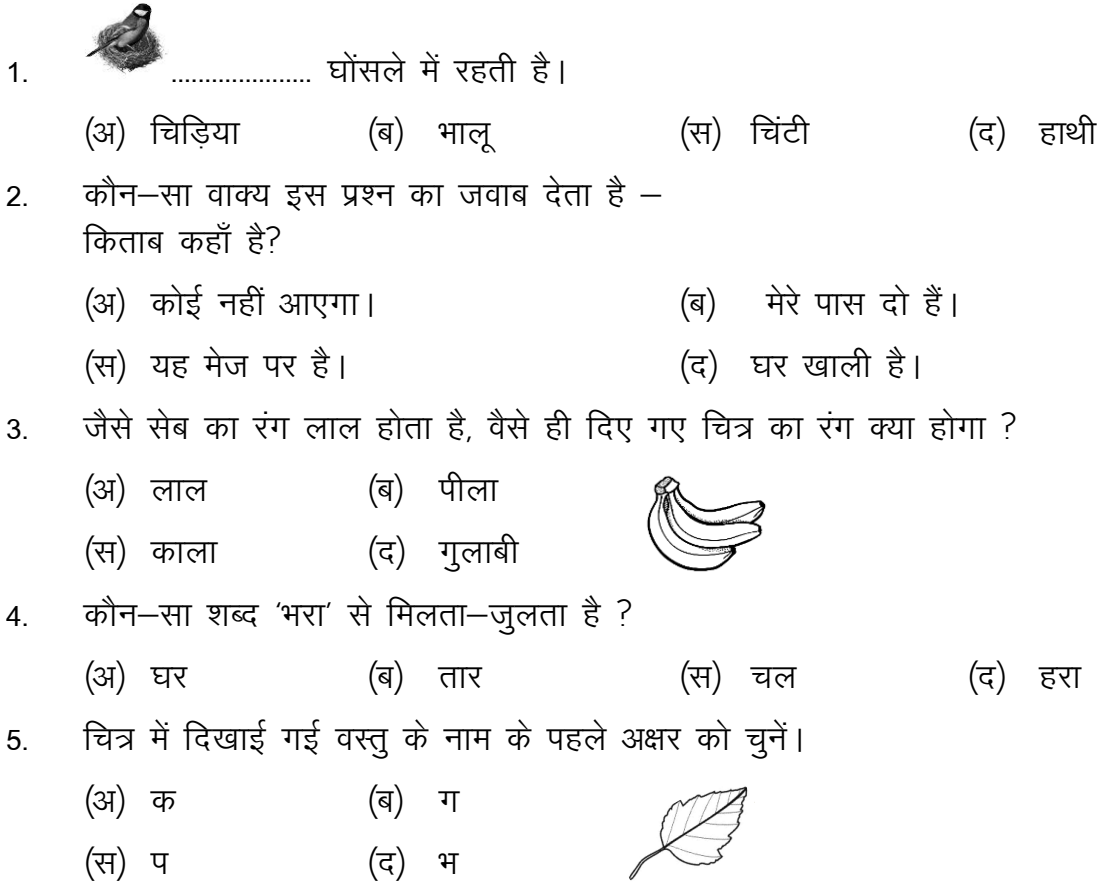 1. ..................... घोंसले में रहती है।
(अ) चिड़िया (ब) भालू (स) चिंटी (द) हाथी
2. कौन–सा वाक्य इस प्रश्न का जवाब देता है –
किताब कहाँ है?
(अ) कोई नहीं आएगा। (ब) मेरे पास दो हैं।
(स) यह मेज पर है। (द) घर खाली है।
3. जैसे सेब का रंग लाल होता है, वैसे ही दिए गए चित्र का रंग क्या होगा ?
(अ) लाल (ब) पीला
(स) काला (द) गुलाबी
4. कौन–सा शब्द ‘भरा’ से मिलता–जुलता है ?
(अ) घर (ब) तार (स) चल (द) हरा
5. चित्र में दिखाई गई वस्तु के नाम के पहले अक्षर को चुनें।
(अ) क (ब) ग
(स) प (द) भ